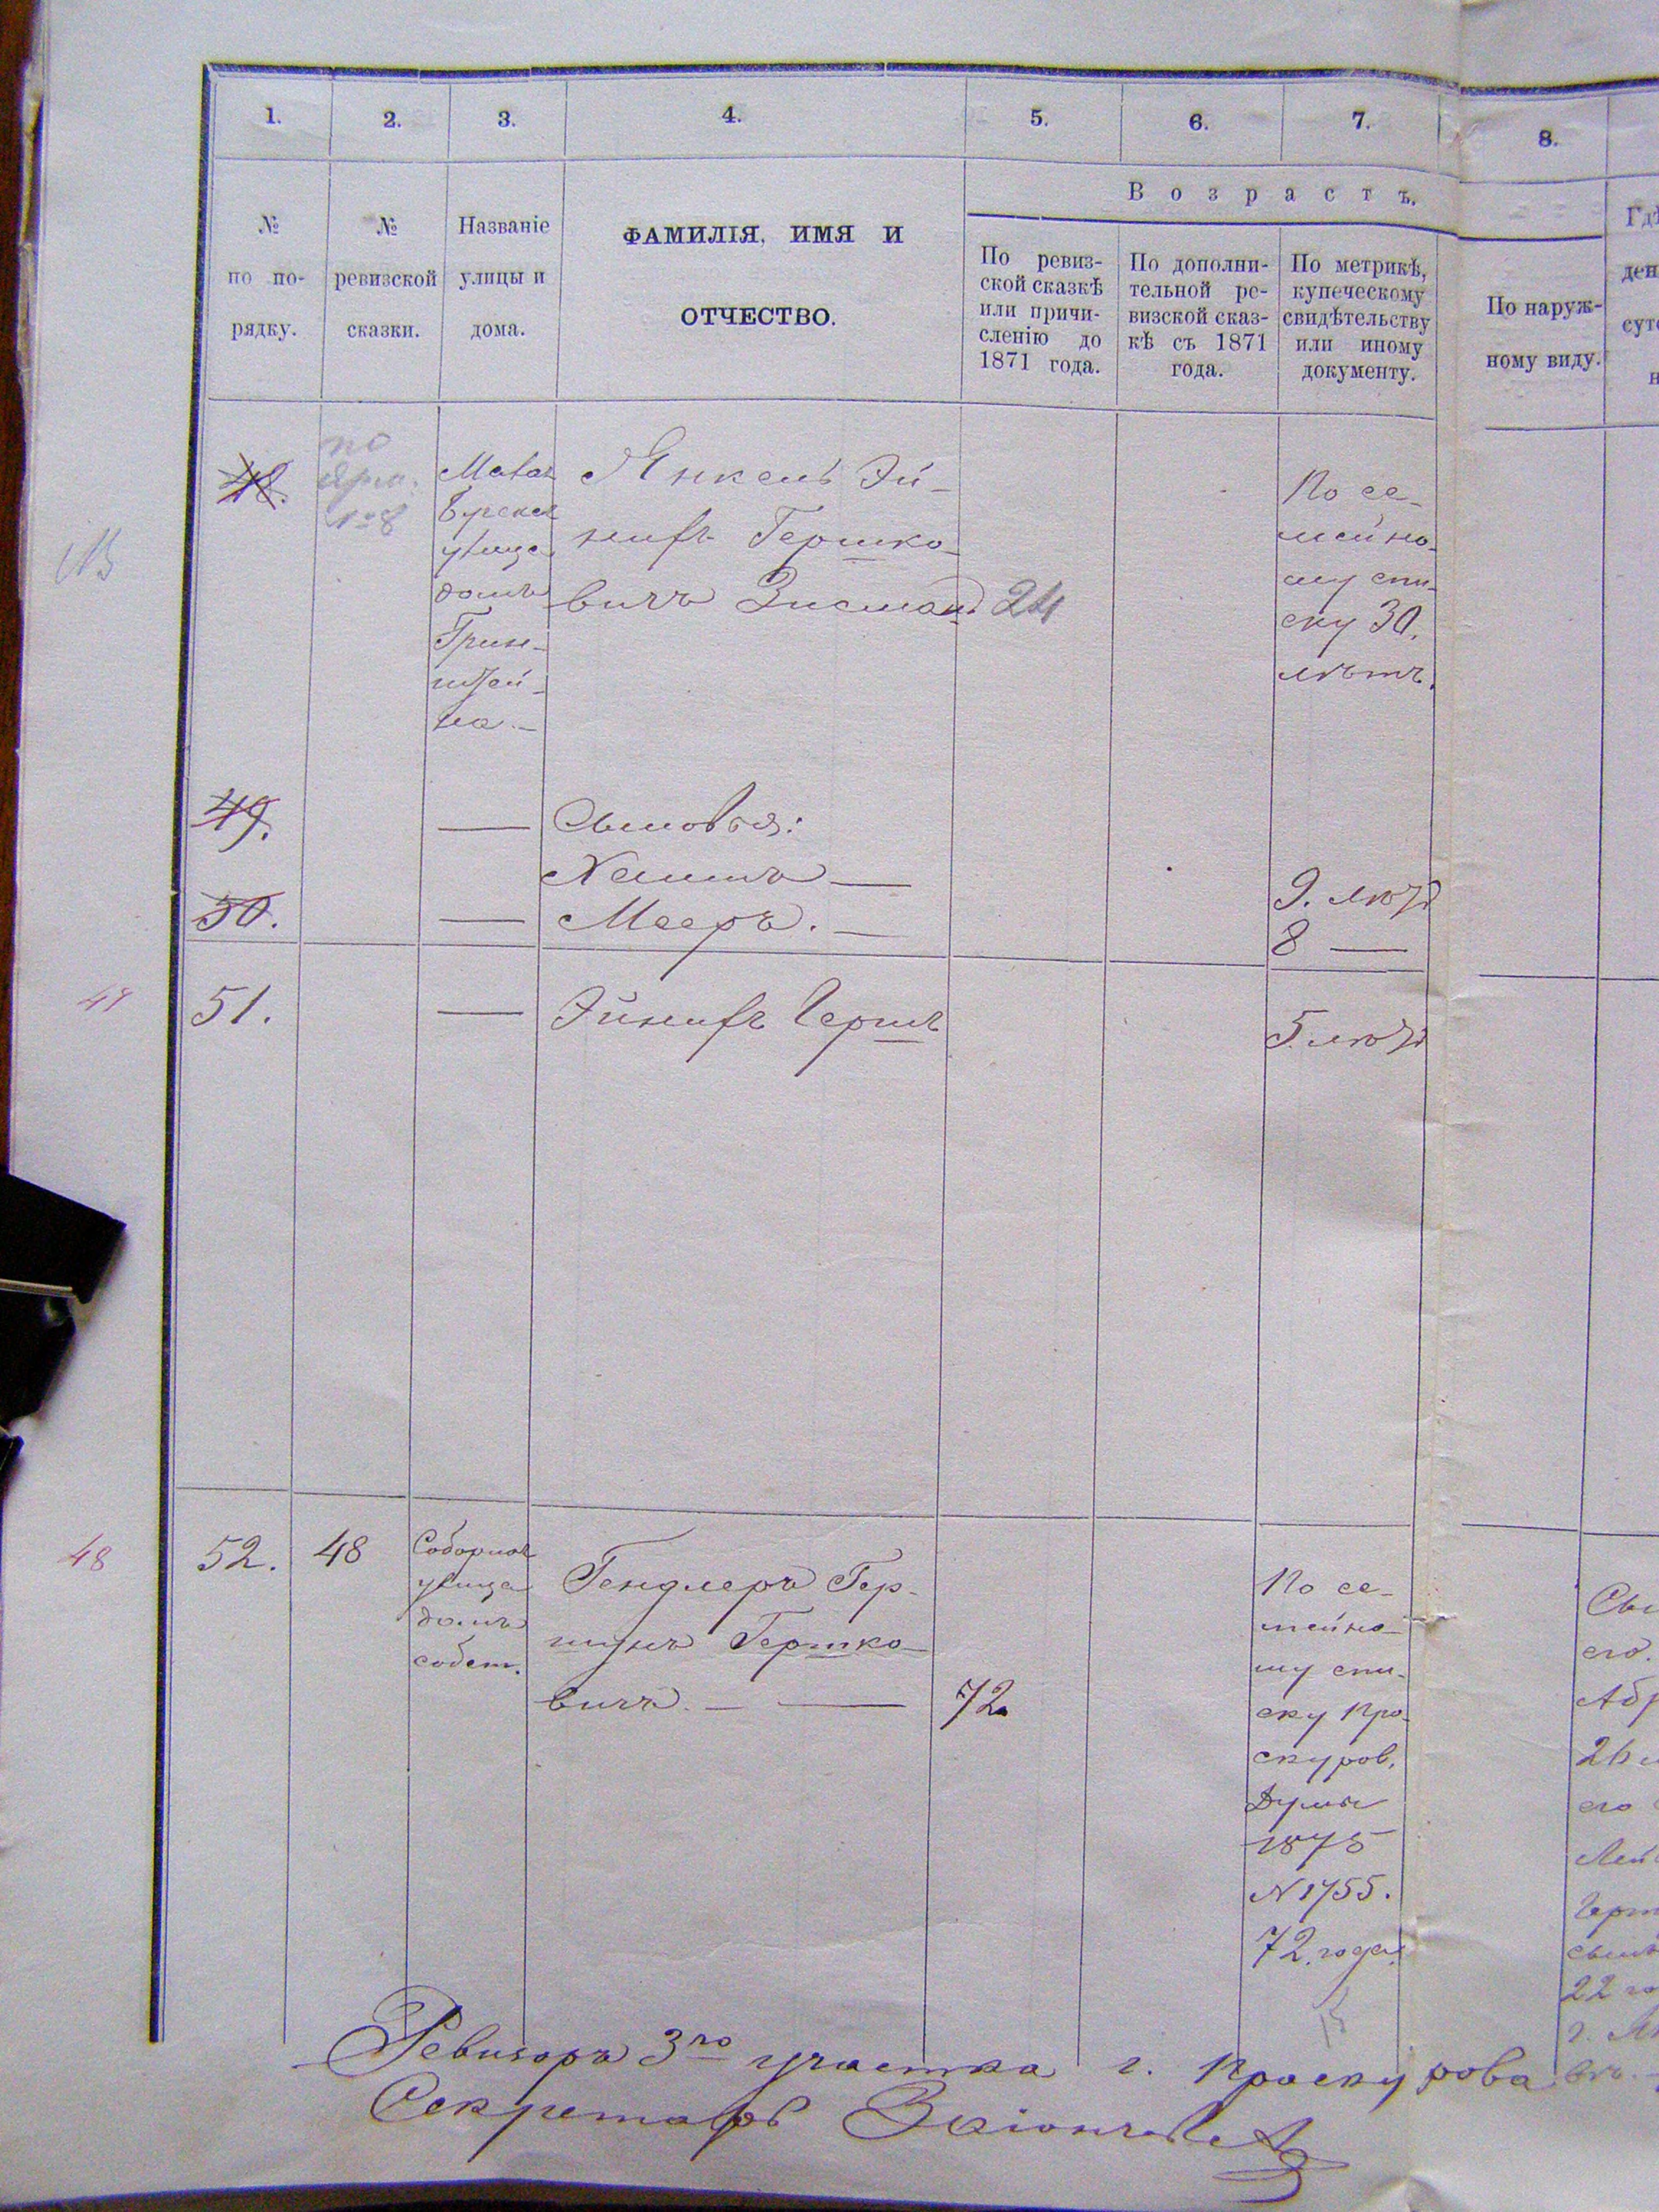 1. 2. 3. 4. 5. 6. 7. 8.
В о з р а с т ъ.
№
по по-
рядку.
№
ревизской
сказки.
Названіе
улицы и
дома.
ФАМИЛІЯ, ИМЯ И
ОТЧЕСТВО.
По ревиз-
ской сказкѣ
или причи-
сленію до
1871 года.
По дополни-
тельной ре-
визской сказ-
кѣ съ 1871
года.
По метрикѣ,
купеческому
свидѣтельству
или иному
документу.
По наруж-
ному виду.
48.
по
№ 8
улица
домъ
Грин-
штей-
на. —
Янкель Эй-
нихъ Гершко-
вичъ Зисман
24
По се-
мейно-
му спи-
ску 30.
лѣтъ.
49.
— Сыновья:
Хаимъ —
9. лѣтъ
50.
— Мееръ. —
8 —
47
51.
— Эйнихъ Гершъ
5. лѣтъ
48
52.
48
Соборная
улица
домъ
собст.
Гендлеръ Гер-
шунъ Гершко-
вичъ. — —
72
По се-
мейно-
му спи-
ску Про-
скуров.
Думы
1875
N 1755.
72. года.
26
его
22
Ревизоръ 3го участка г. Проскурова
Секретарь